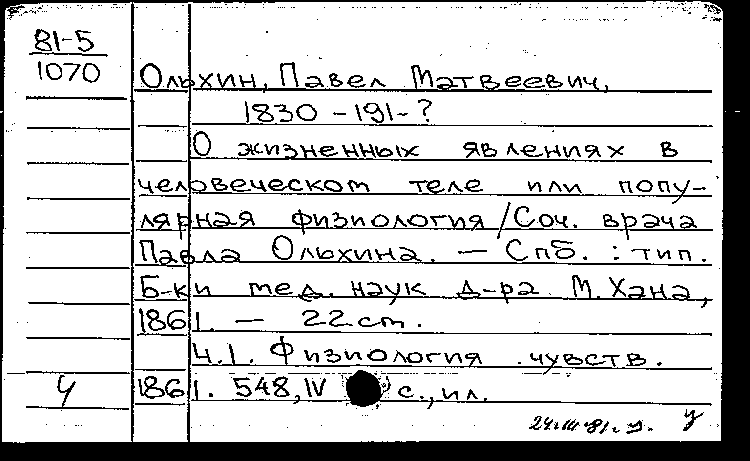 81-5
1070
Ольхин, Павел Матвеевич,
1830 -191-?
О жизненных явлениях в
человеческом теле или попу-
лярная физиология/Соч. врача
Павла Ольхина. — Спб. : тип.
Б-ки мед. наук д-ра М. Хана,
1861. — 22 см.
Ч.1. Физиология чувств.
1861. 548, IV с., ил.
Ч
24.III.81г. У